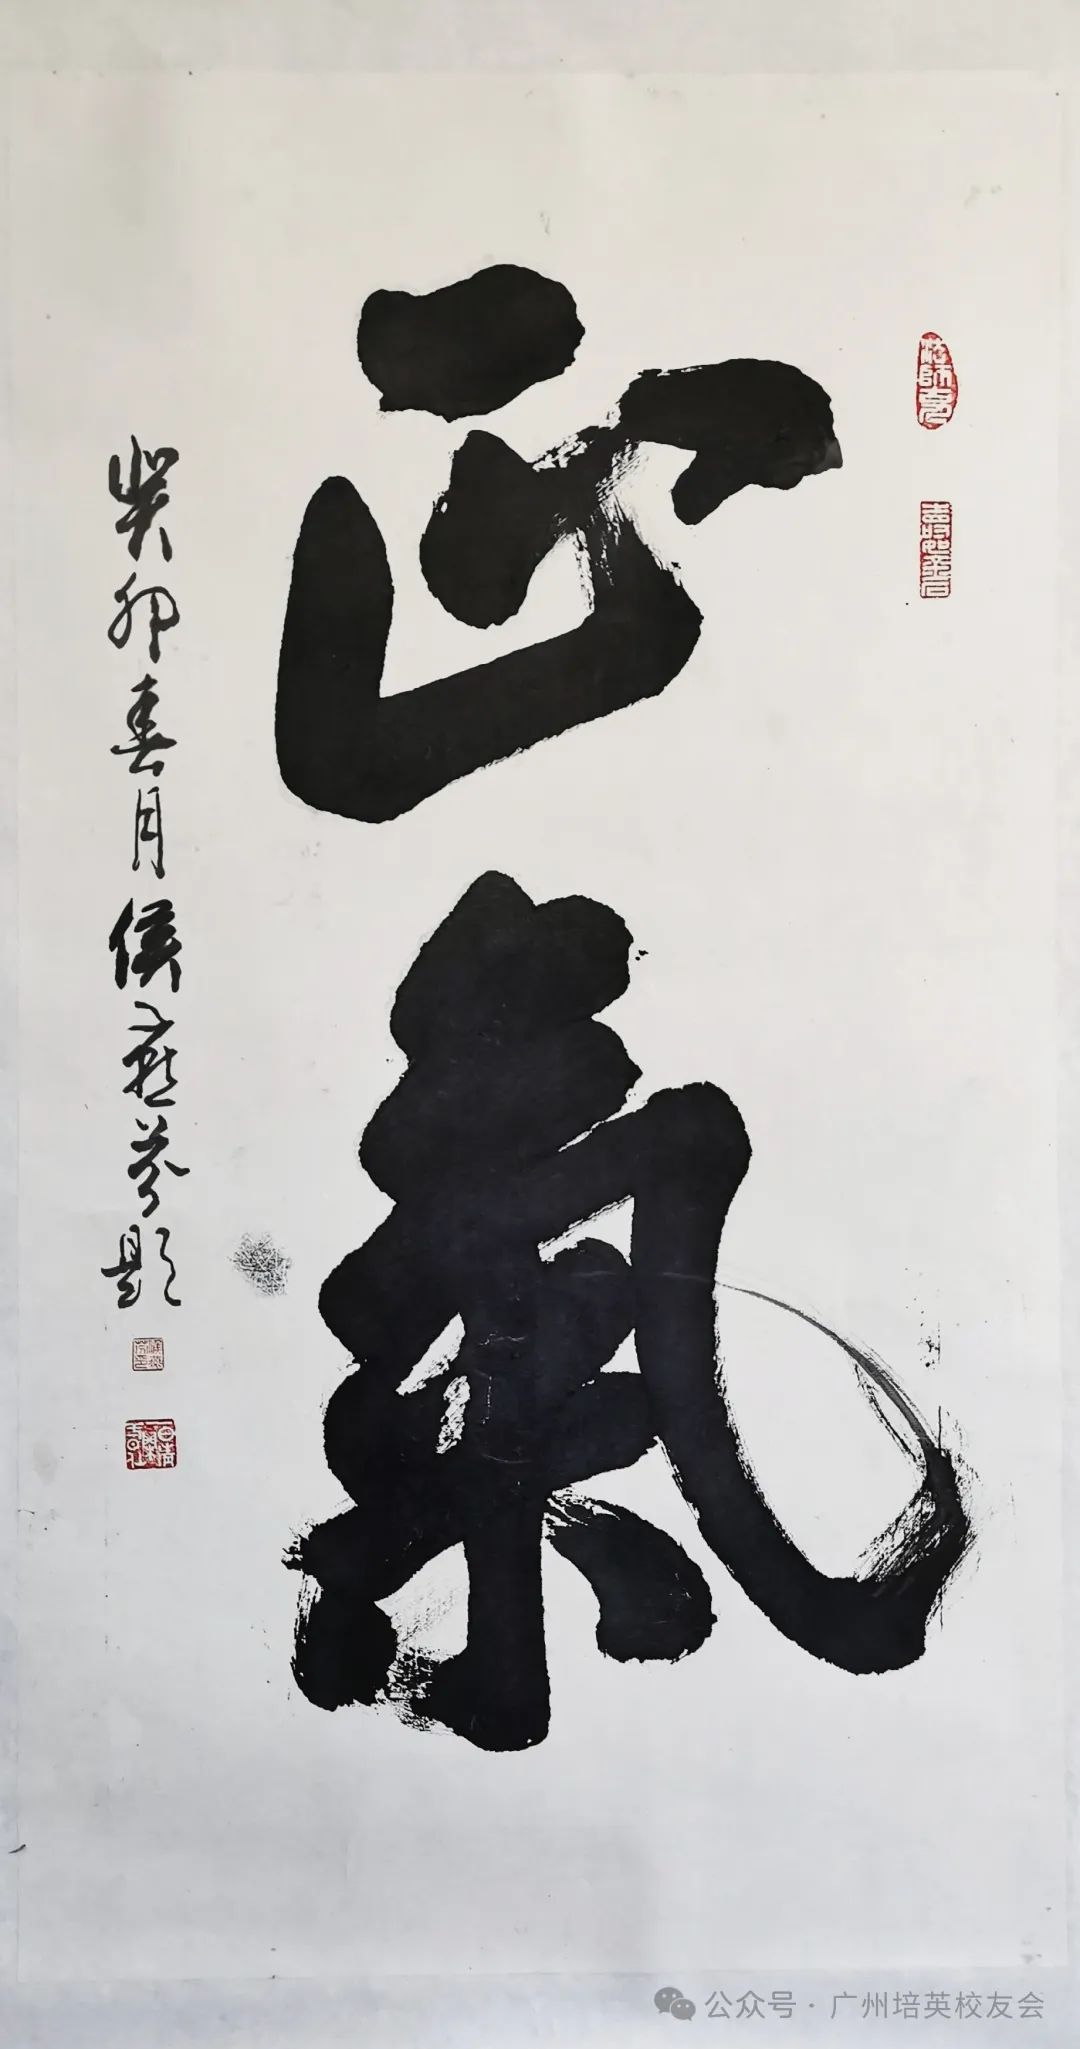 正氣
癸卯春月侯燕芬題
公众号·广州培英校友会